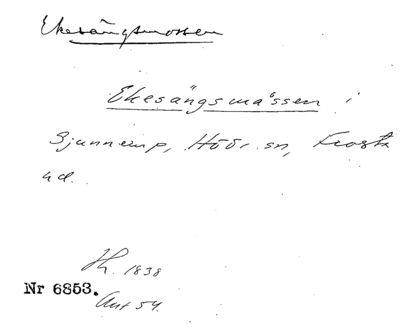 Ekesångsmossen
Ekesångsmåssen i
Sjunnerup, Höör sn, Frosta
hd.
Hr. 1838
Nr 6853.
Ant 54.